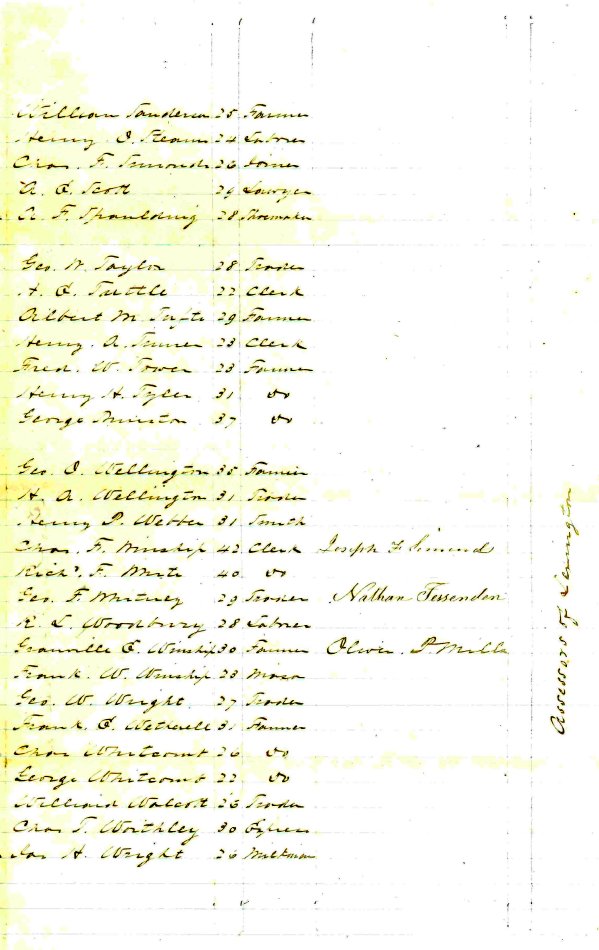 William Sanderson 25 Farmer
Henry O. Stearns 24 Labrier
Chas. F. Simonds 26 Joiner
A. E. Scott 29 Lawyer
A. F. Spaulding 28 Shoemaker
Geo. W. Taylor 28 Trader
H. E. Tuttle 22 Clerk
Albert M. Tufts 29 Farmer
Henry A. Turner 23 Clerk
Fred. W. Tower 23 Farmer
Henry H. Tyler 31 do
George 37 do
Geo. O. Wellington 35 Farmer
H. A. Wellington 31 Trader
Henry P. Webber 31 Smith
Chas. F. Winship 42 Clerk Joseph F Simond
Richd. F. White 40 do
Geo. F. Whitney 29 Trader Nathan Fessenden
R. L. Woodbury 28 Labrier
Granville E. Winship 30 Farmer Oliver P Mills
Frank. W. Winship 23
Geo. W. Wright 27 Trader
Frank. E. Wetherell 31 Farmer
Chas Whitcomb 26 do
George Whitcomb 22 do
Williard Walcott 26 Trader
Chas T. Worthley 30
Jas H. Wright 26 Milkman
Assessors of Lexington